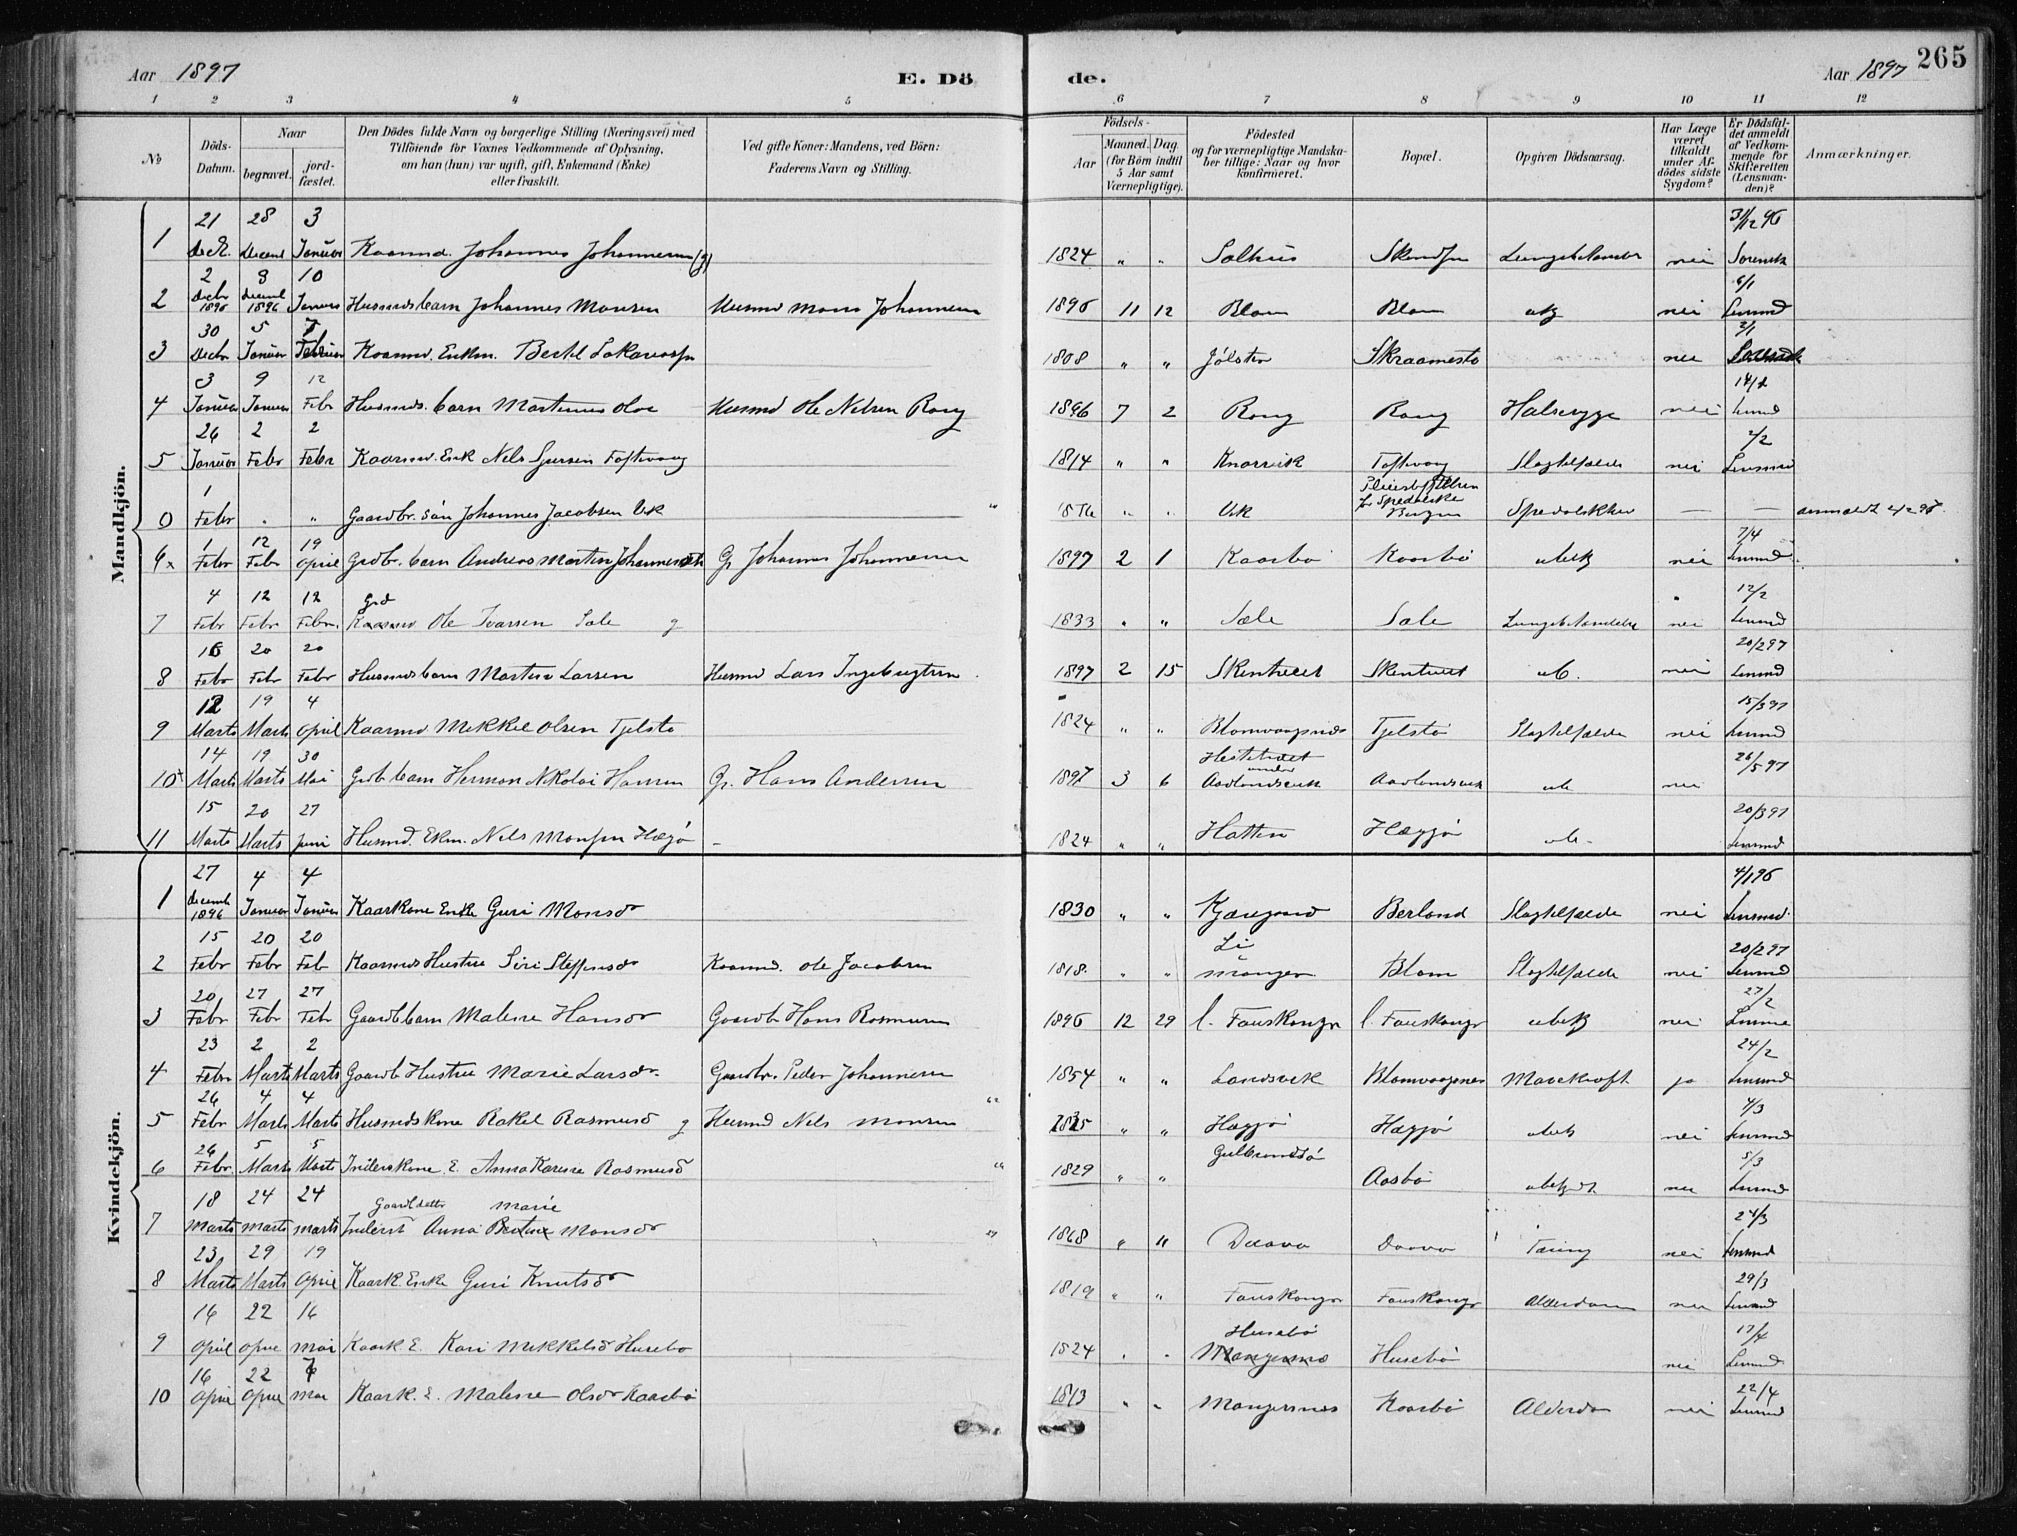 Aar 1897 E. Dö de. Aar 1897 265
1 2 3 4 5 6 7 8 9 10 11 12
№ Döds-Datum. Naar begravet. jord-fæstet. Den Dödes fulde Navn og borgerlige Stilling (Næringsvei) med Tilföiende for Voxnes Vedkommende af Oplysning, om han (hun) var ugift, gift, Enkemand (Enke) eller fraskilt. Ved gifte Koner: Mandens, ved Börn: Faderens Navn og Stilling. Födsels- Aar Maaned. Dag. (for Börn indtil 5 Aar samt Værnepligtige). Födested og for værnepligtige Mandskaber tillige: Naar og hvor konfirmeret. Bopæl. Opgiven Dödsaarsag. Har Læge været tilkaldt under Afdödes sidste Sygdom? Er Dödsfaldet anmeldt af Vedkommende for Skifteretten (Lensmanden)? Anmærkninger.
Mandkjön.
1 21 Decb. 28 Decemb 3 Januar Kaarmd. Johannes Johannesen (g) 1824 " " Salhus nei 31/12 96
2 2 Decbr 1896 8 Decemb 1896 10 Januar Husmdsbarn Johannes Monsen Husmd Mons Johannesen 1896 11 12 Blom Blom ubk nei 6/1 Lensmd
3 30 Decbr 5 Januar 7 Februar Kaarmd. Enkm. Bertel 1808 " " Jølster Skraamestø nei 2/1
4 3 Januar 9 Januar 12 Febr Husmds. barn Martinus Olai Husmd Ole Nelsen Rong 1896 7 2 Rong Rong Halssyge nei 14/1 Lensmd
5 26 Januar 2 Febr 2 Febr Kaarmd. Enk Nels Sjursen Toftevaag 1814 " " Knarvik Toftevaag Slagtilfælde nei 2/2 Lensmd
0 1 Febr " " Gaardbr. Sön Johannes Jacobsen Vik " " " Vik Pleiestiftelsen for Spedalske Bergen Spedalskhed — — anmeldt
6x 1 Febr 12 Febr 19 April Grdb. barn Andreas Martin Johannessen G. Johannes Johannesen 1897 2 1 Kaarbø Kaarbø ubek nei 7/4 Lensmd
7 4 Febr 12 Febr 12 Febr. Grd Kaarmd Ole Ivarsen Sæle g 1833 " " Sæle Sæle Lungebetændelse nei 12/2 Lensmd
8 16 Febr 20 Febr 20 Febr Husmdsbarn Martin Larsen Husmd Lars Ingebrigtsen 1897 2 15 ub. nei 20/2 97 Lensmd
9 12 Marts 19 Marts 4 April Kaarmd Mekkel Olsen Tjelstø 1824 " " Blomvaagsnes Tjelstø Slagtilfælde nei 15/3 97 Lensmd
10x 14 Marts 19 Marts 30 Mai Grdb barn Herman Nikolai Hansen G. Hans Andersen 1897 3 6 under Aadlandsvik Aadlandsvik ub nei 26/5 97
11 15 Marts 20 Marts 27 Juni Husmd. Ekm. Nels Monsen Hægø — 1824 " " Hatten Hægjø ub. 20/3 97 Lensmd
Kvindekjön.
1 27 Decemb 1896 4 Januar 4 Januar Kaarkone Enke Guri Monsdr 1830 " " Kjæregaard Berland Slagtilfælde nei 4/1 96 Lensmd.
2 15 Febr 20 Febr 20 Feb Kaarmds Hustru Siri Steffensdr Kaarmd. Ole Jacobsen 1818. " " Li Manger Blom Slagtilfælde nei 20/2 97 Lensmd
3 20 Febr 27 Febr 27 Febr Gaardb barn Malene Hansdr Gaardb Hans Rasmusen 1896 12 29 l. Fauskanger l. Fauskanger ubek nei 27/2
4 23 Febr 2 Marts 2 Marts Gaardb Hustru Marie Larsdr. Gaardbr. Peder Johannesen 1854 " " Landsvik Blomvaagsnes Mavekræft ja 24/2 Lensmd
5 26 Febr 4 Marts 4 Marts Husmdskone Rakel Rasmusd g Husmd Nels Monsen " " Hægjø Hægjø ubek nei 4/3 Lensmd
6 26 Febr 5 Marts 5 Marts Inderskone E. Anna Karine Rasmusd " 1829 " " Gulbrandsø Aasbø ubekjdt nei 5/3 Lensmd
7 18 Marts 24 Marts 24 Marts Gaardb datter Inderst Anna Marie Bertine Monsdr " 1868 " " Daava Daava Tæring nei 24/3 Lensmd
8 23 Marts 29 Marts 19 April Kaark. Enke Guri Knutsdr 1819 " " Fauskanger Fauskanger Alderdom nei 29/3 Lensmd
9 16 April 22 April 16 Mai Kaark E. Kari Mekkelsd Husebø 1824 " " Husebø Mangersnes Husebø nei 17/4 Lensmd
10 16 April 22 April Mai Kaark. E. Malene Olsdr Kaarbø 1813 " " Mangersnes Kaarbø Alderdom nei 22/4 Lensmd